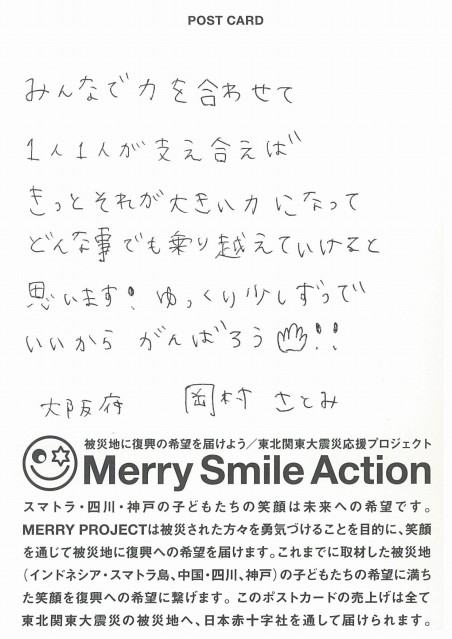 POST CARD
みんなで力を合わせて
1人1人が支え合えば
きっとそれが大きい力になって
どんな事でも乗り越えていけると
思います! ゆっくり少しずつで
いいから がんばろう!!
大阪府 岡村 さとみ
被災地に復興の希望を届けよう/東北関東大震災応援プロジェクト
Merry Smile Action
スマトラ・四川・神戸の子どもたちの笑顔は未来への希望です。
MERRY PROJECTは被災された方々を勇気づけることを目的に、笑顔
を通じて被災地に復興への希望を届けます。これまでに取材した被災地
(インドネシア・スマトラ島、中国・四川、神戸)の子どもたちの希望に満ち
た笑顔を復興への希望に繋げます。このポストカードの売上げは全て
東北関東大震災の被災地へ、日本赤十字社を通して届けられます。